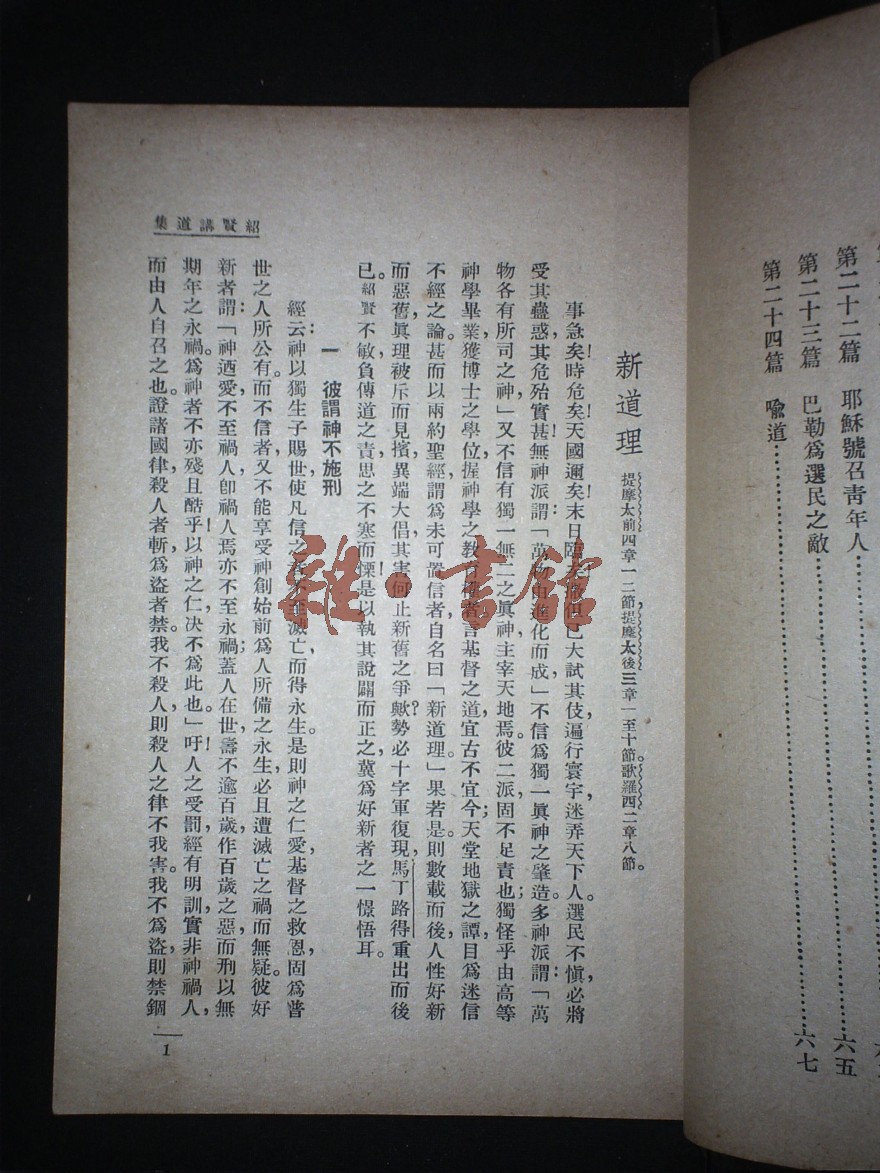 第二十二篇 耶穌號召靑年人……六五
第二十三篇 巴勒爲選民之敵
第二十四篇 喩道……六七
紹賢講道集
新道理 提摩太前四章一二節,提摩太後三章一至十節。歌羅西二章八節。
事急矣!時危矣!天國邇矣!末日臨矣!撒但已大試其伎,遍行寰宇,迷弄天下人。選民不愼,必將
受其蠱惑,其危殆實甚!無神派謂:「萬物由進化而成」不信爲獨一眞神之肇造。多神派謂:「萬
物各有所司之神」又不信有獨一無二之眞神,主宰天地焉。彼二派固不足責也;獨怪乎由高等
神學畢業,獲博士之學位,握神學之教權者,言基督之道,宜古不宜今;天堂地獄之譚,目爲迷信
不經之論。甚而以兩約聖經,謂爲未可置信者,自名曰「新道理」果若是,則數載而後,人性好新
而惡舊,眞理被斥而見擯,異端大倡,其害何止新舊之爭歟?勢必十字軍復現,馬丁路得重出而後
已。紹賢不敏,負傳道之責,思之不寒而慄!是以執其說,闢而正之,冀爲好新者之一憬悟耳。
一 彼謂神不施刑
經云:神以獨生子賜世,使凡信之者,不至滅亡,而得永生。是則神之仁愛,基督之救恩,固爲普
世之人所公有。而不信者,又不能享受神創始前爲人所備之永生,必且遭滅亡之禍而無疑。彼好
新者謂:「神迺愛,不至禍人,卽禍人焉,亦不至永禍;蓋人在世,壽不逾百歲,作百歲之惡,而刑以無
期年之永禍。爲神者不亦殘且酷乎!以神之仁,决不爲此也。」吁!人之受罰,經有明訓,實非神禍人,
而由人自召之也。證諸國律,殺人者斬,爲盜者禁。我不殺人,則殺人之律不我害。我不爲盜,則禁錮
1
雜·書館